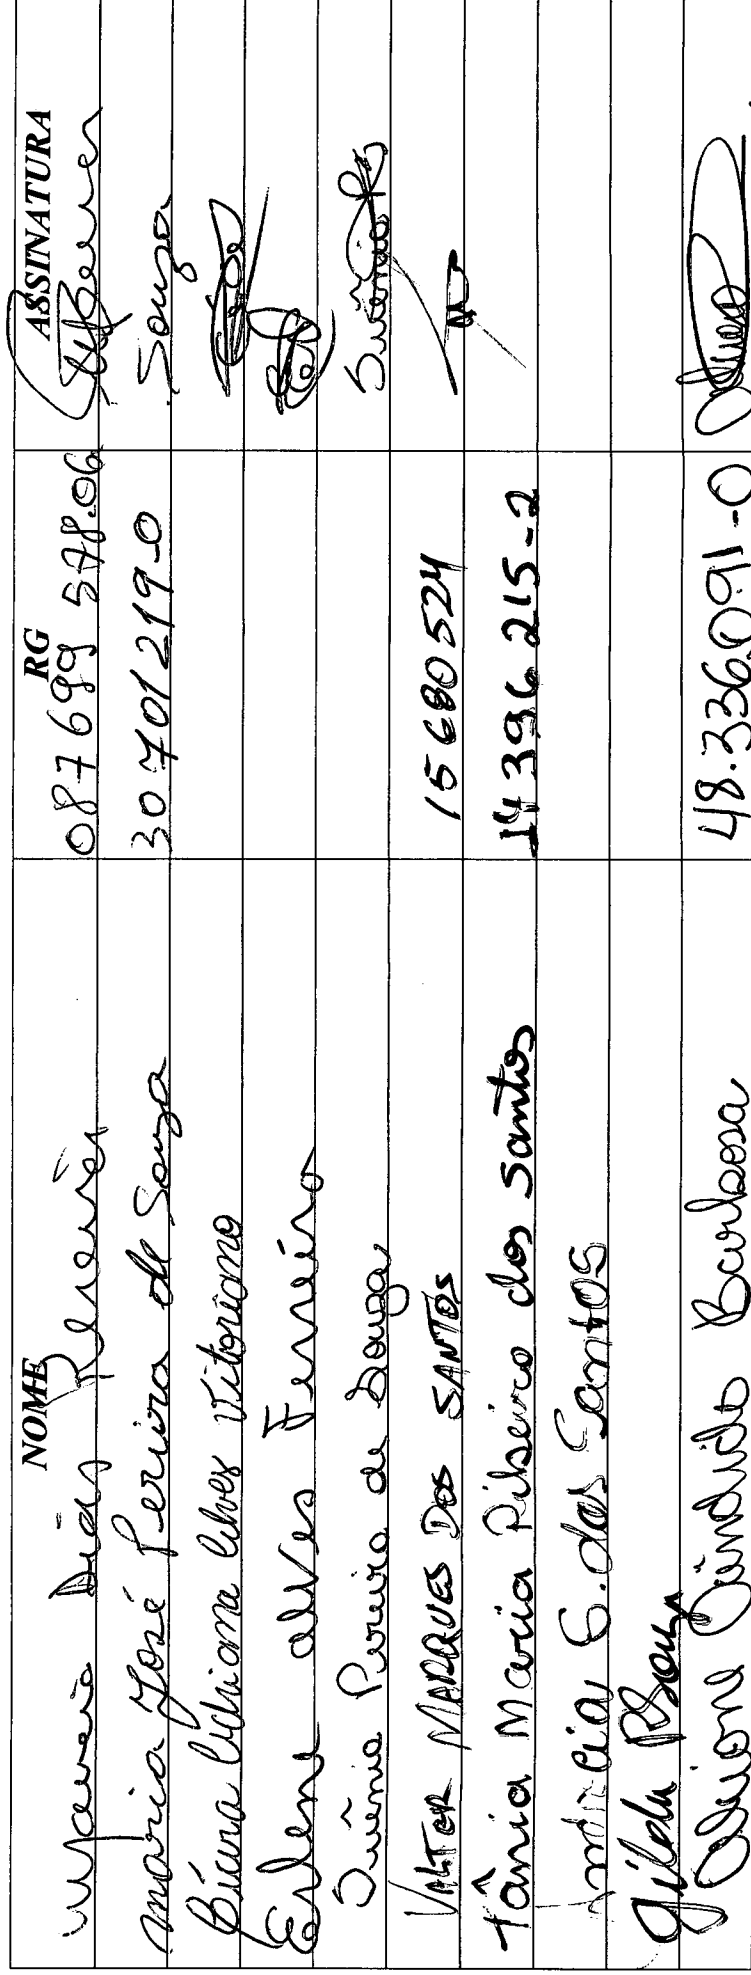 NOME RG ASSINATURA
Maria Dias Pereira 087699 578.06
Maria José Pereira de Souza 30701219-0 Souza
Adriana Alves Vitoriano
Erlene alves Ferreira
Suênia Pereira de Souza Suênia
VALTER MARQUES DOS SANTOS 15680524
Tânia Maria Ribeiro dos Santos 14396215-2
S. dos Santos
Gilda
Cândido Barbosa 48.336091-0